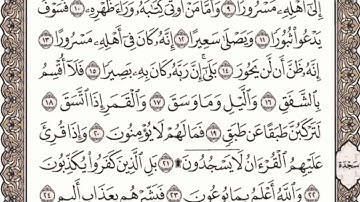 إِلَىٰٓ أَهۡلِهِۦ مَسۡرُورٗا ٩ وَأَمَّا مَنۡ أُوتِيَ كِتَٰبَهُۥ وَرَآءَ ظَهۡرِهِۦ ١٠ فَسَوۡفَ
يَدۡعُواْ ثُبُورٗا ١١ وَيَصۡلَىٰ سَعِيرًا ١٢ إِنَّهُۥ كَانَ فِيٓ أَهۡلِهِۦ مَسۡرُورًا ١٣
إِنَّهُۥ ظَنَّ أَن لَّن يَحُورَ ١٤ بَلَىٰٓۚ إِنَّ رَبَّهُۥ كَانَ بِهِۦ بَصِيرٗا ١٥ فَلَآ أُقۡسِمُ
بِٱلشَّفَقِ ١٦ وَٱلَّيۡلِ وَمَا وَسَقَ ١٧ وَٱلۡقَمَرِ إِذَا ٱتَّسَقَ ١٨
لَتَرۡكَبُنَّ طَبَقًا عَن طَبَقٖ ١٩ فَمَا لَهُمۡ لَا يُؤۡمِنُونَ ٢٠ وَإِذَا قُرِئَ
عَلَيۡهِمُ ٱلۡقُرۡءَانُ لَا يَسۡجُدُونَۤ۩ ٢١ بَلِ ٱلَّذِينَ كَفَرُواْ يُكَذِّبُونَ
٢٢ وَٱللَّهُ أَعۡلَمُ بِمَا يُوعُونَ ٢٣ فَبَشِّرۡهُم بِعَذَابٍ أَلِيمٍ ٢٤
سَجْدَة